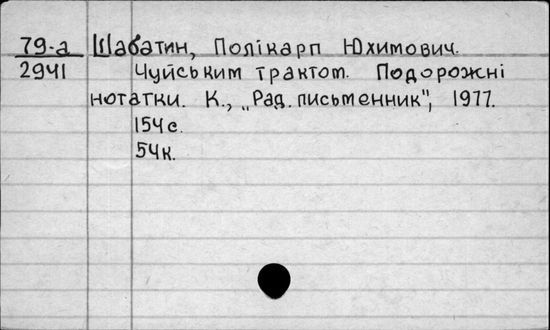 79-а Шабатин, Полікарп Юхимович.
2941 Чуйським трактом. Подорожні
нотатки. К., „Рад. письменник", 1977.
154с.
54к.